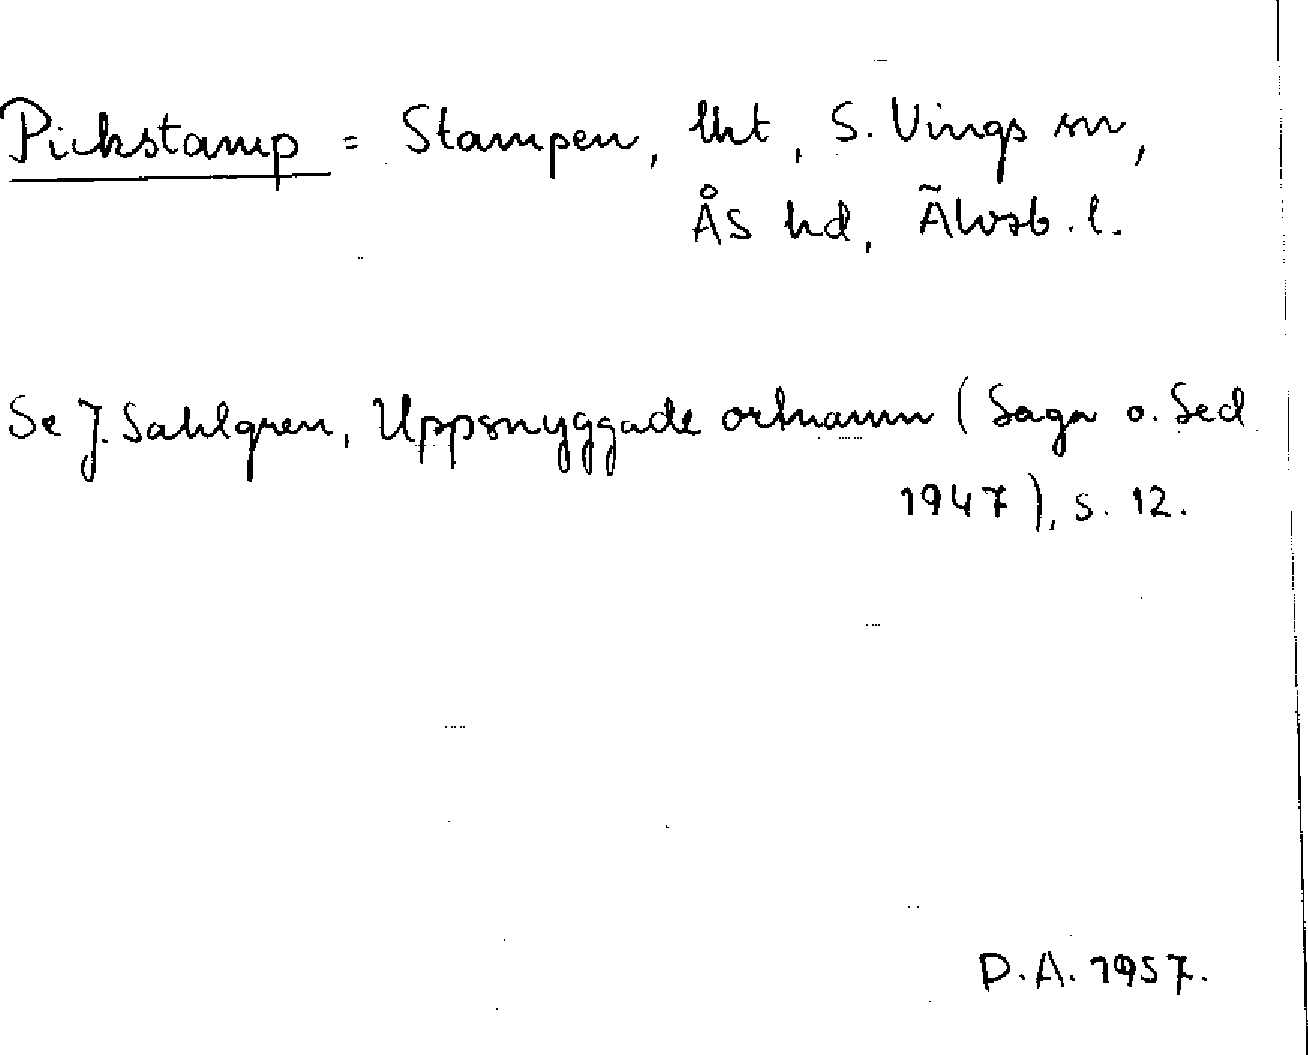 Pickstamp = Stampen, lht, S. Vings sn,
Ås hd, Älvsb. l.
Se J. Sahlgren, Uppsnyggade ortnamn (Saga o. Sed
1947), s. 12.
D.A. 1957.